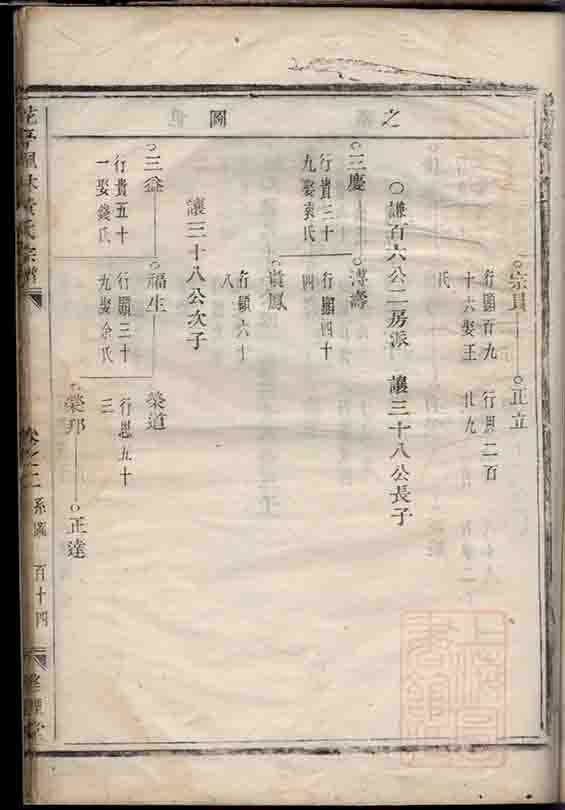 之
圖
宗貝
行顯百九
十六娶王
氏
正立
行思二百
廿九
謙百六公二房派 讓三十八公長子
三慶
行貴三十
九娶袁氏
溥壽
行顯四十
四
貴鳳
行顯六十
八
讓三十八公次子
三益
行貴五十
一娶錢氏
福生
行顯三十
九娶余氏
榮道
行思五十
三
榮邦
正達
卷之二
系圖
百十四
上海圖
書館